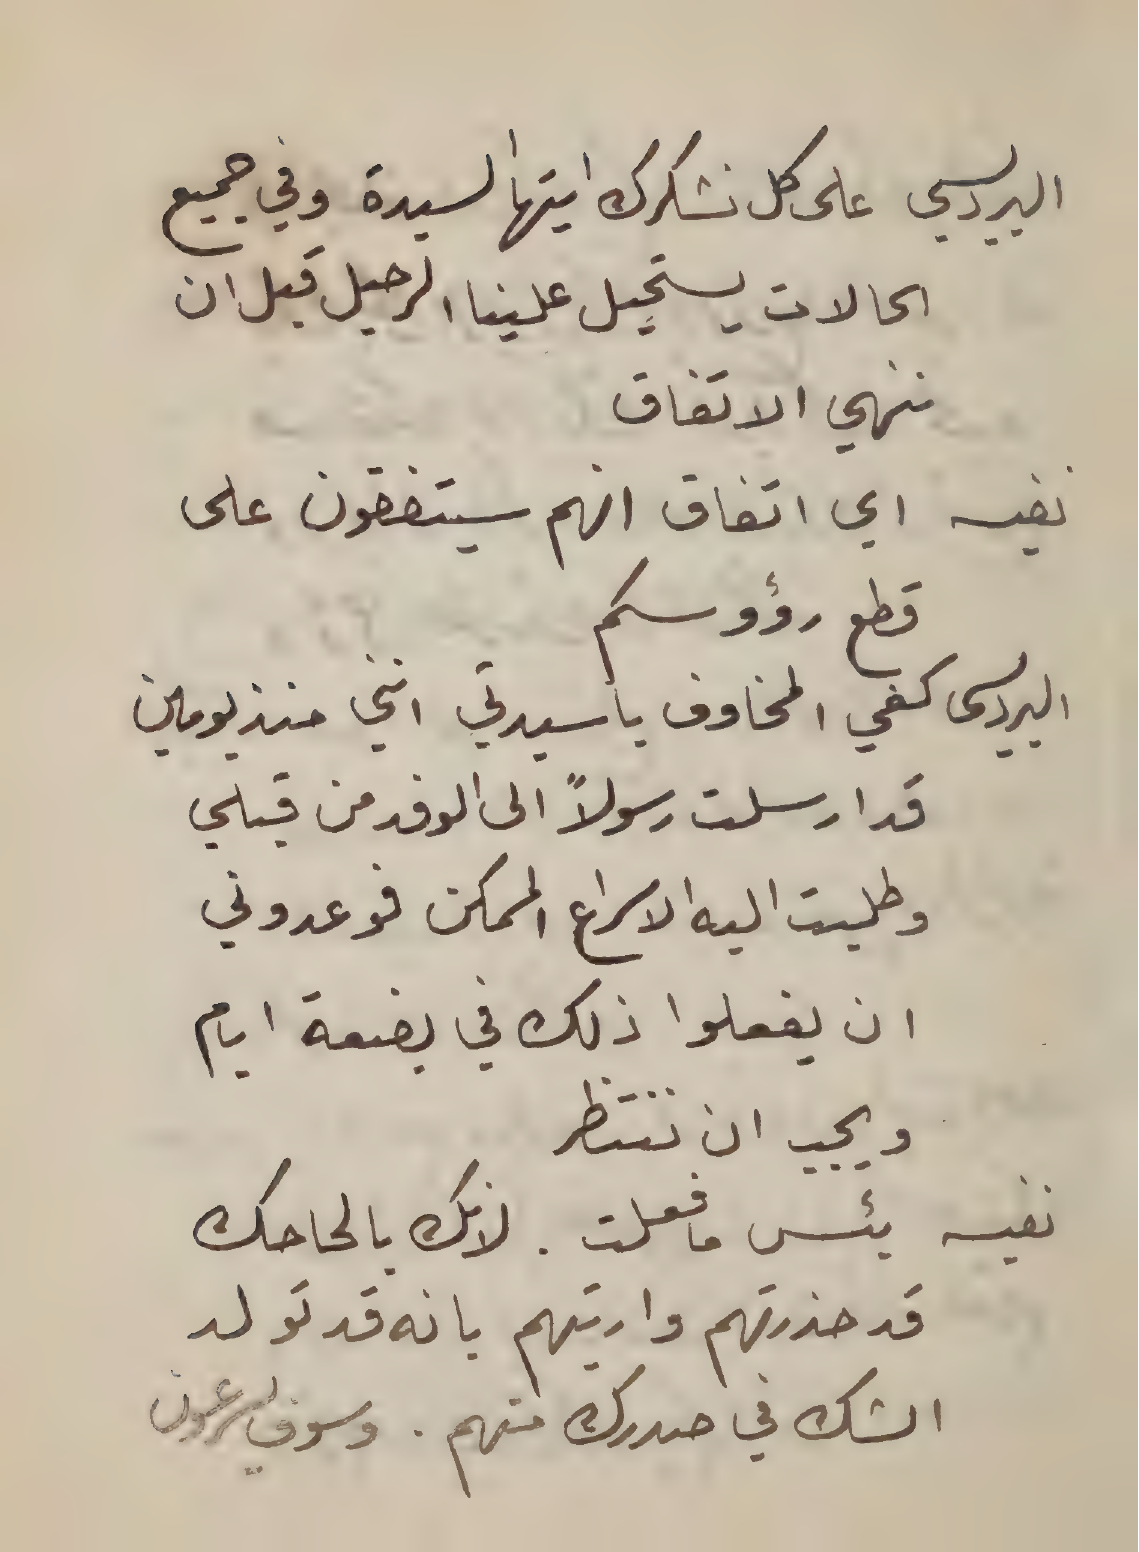 البرديسي على كل نشكرك ايتها السيدة وفي جميع
الحالات يستحيل علينا الرحيل قبل ان
ننهي الاتفاق
نفيسه اي اتفاق انهم سيتفقون على
قطع رؤوسكم
البرديسى كفي المخاوف يا سيدتي انني منذ يومين
قد ارسلت رسولاً الى الوفد من قبلي
وطلبت اليه الاسراع الممكن فوعدوني
ان يفعلوا ذلك في بضعة ايام
ويجب ان ننتظر
نفيسه بئس ما فعلت . لانك بالحاحك
قد حذرتهم واريتهم بانه قد تولد
الشك في صدرك منهم . وسوف يسرعون